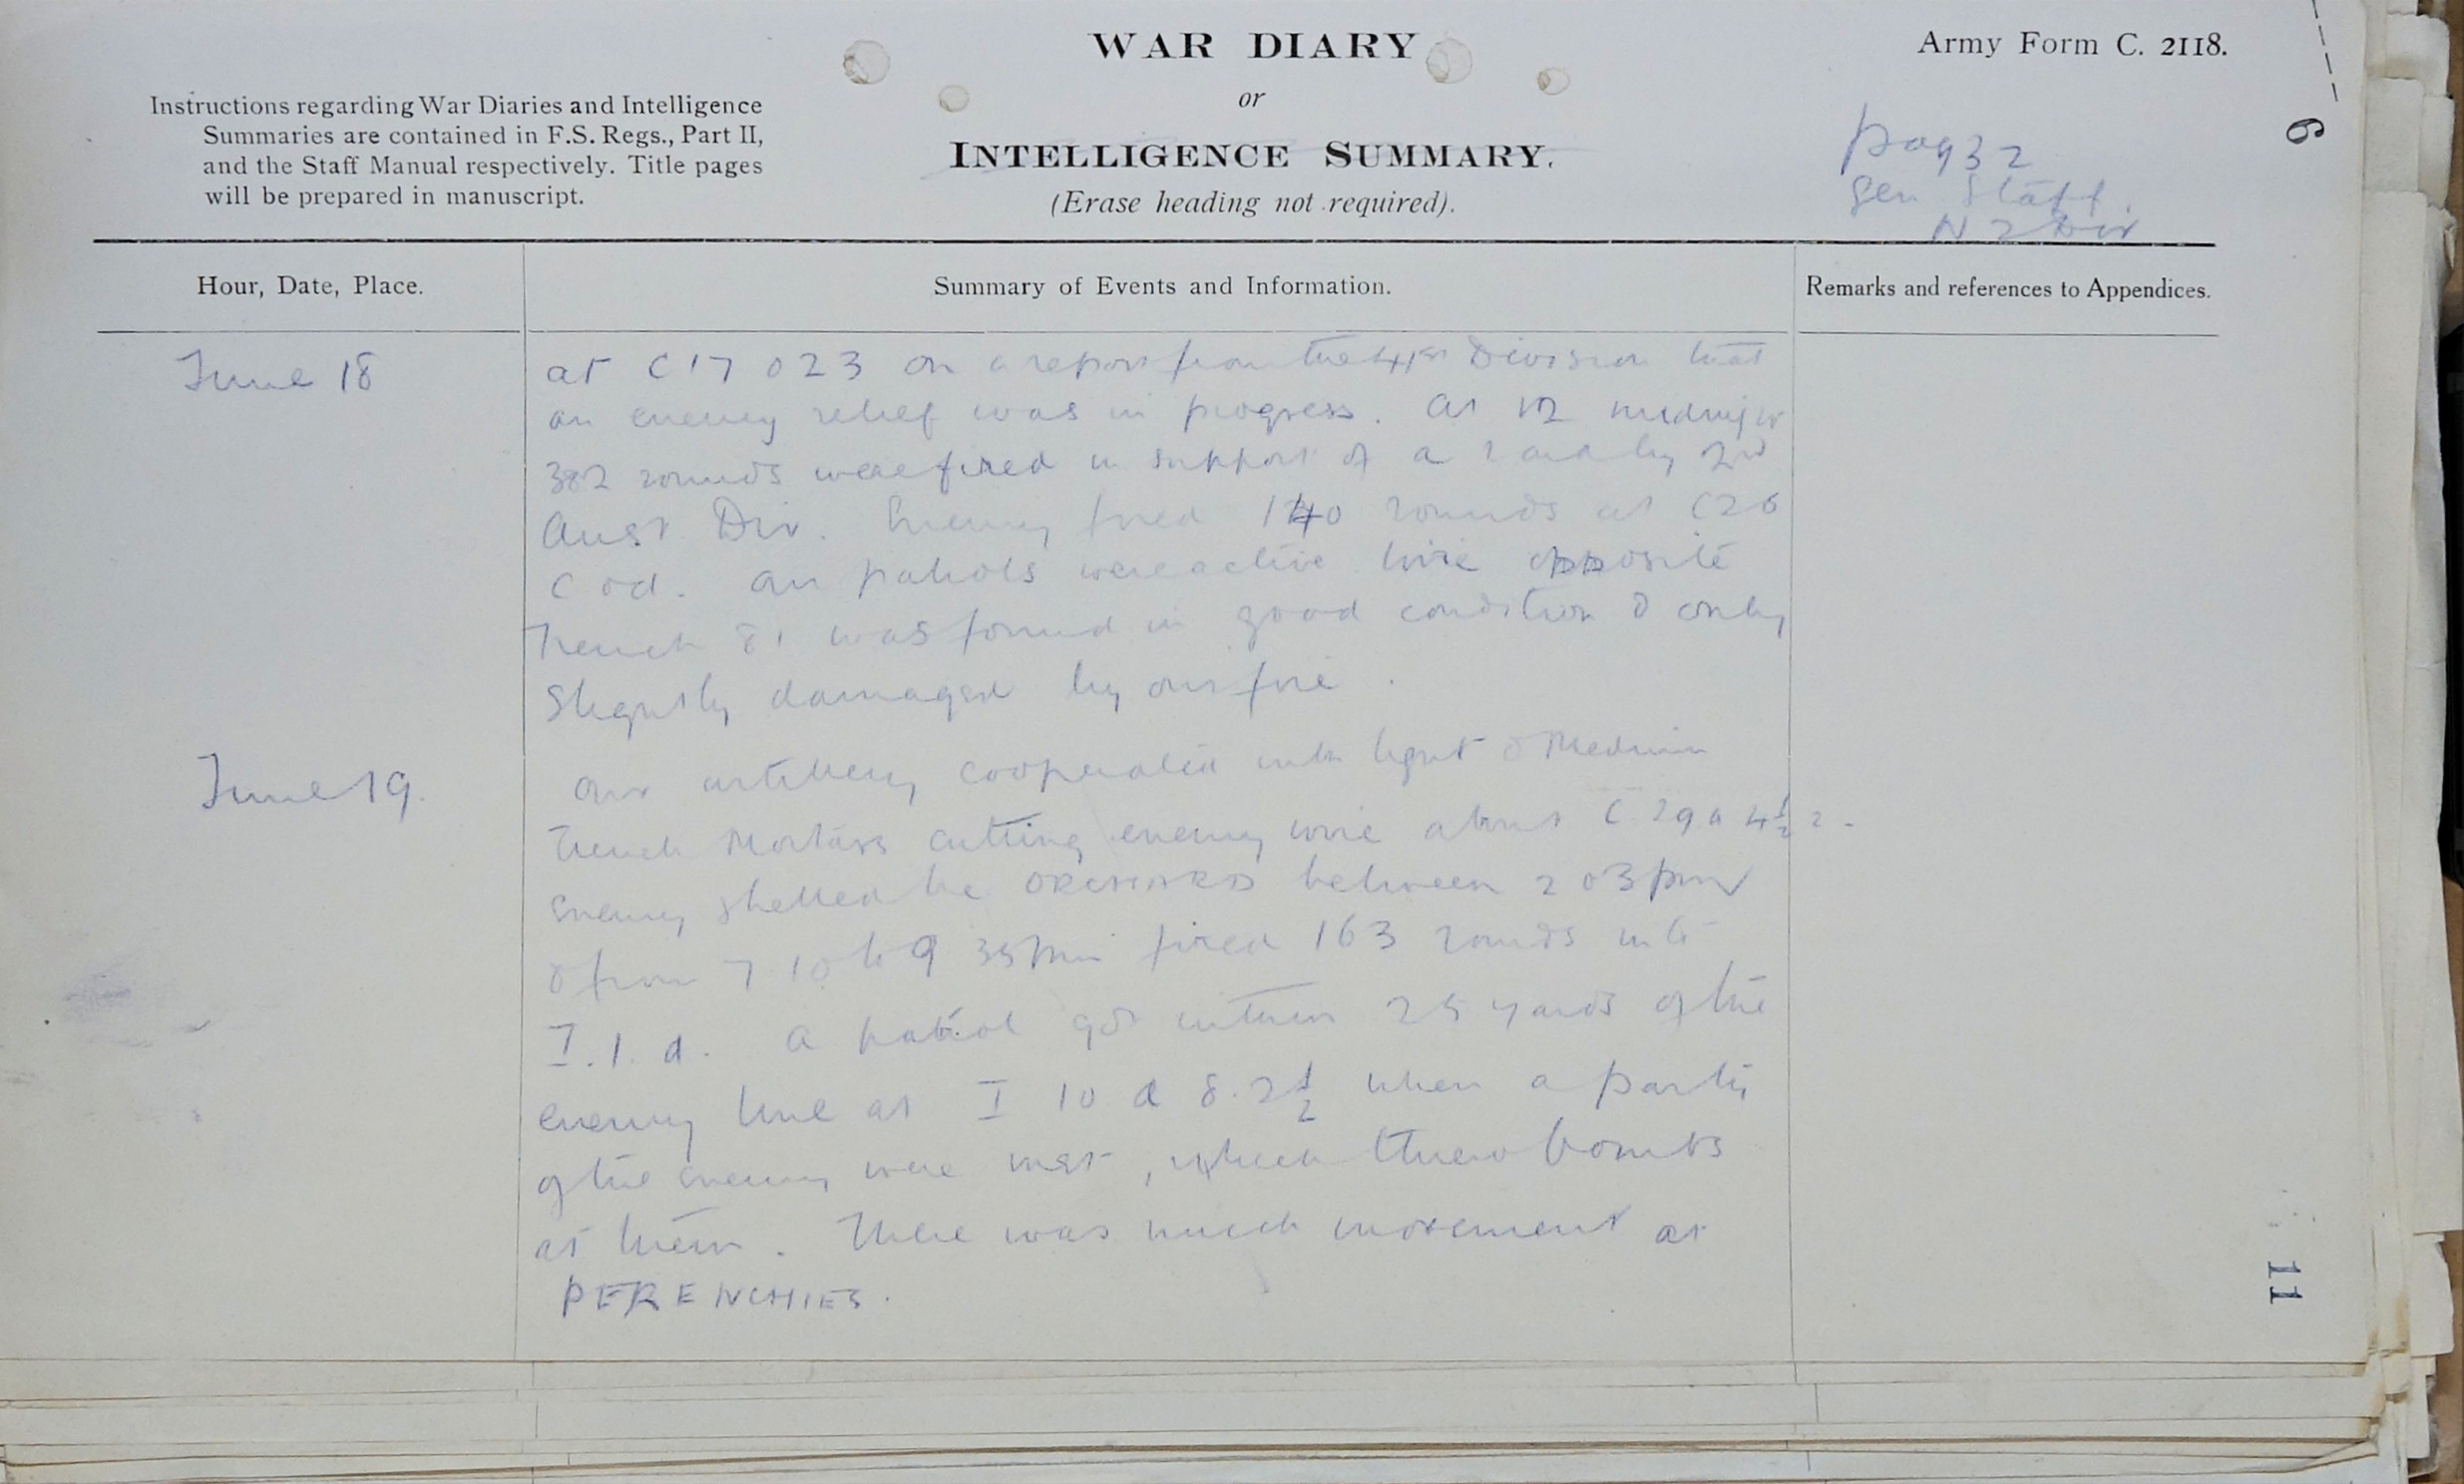 WAR DIARY
or
INTELLIGENCE SUMMARY.
(Erase heading not required).
Army Form C. 2118.
Instructions regarding War Diaries and Intelligence
Summaries are contained in F.S. Regs., Part II,
and the Staff Manual respectively. Title pages
will be prepared in manuscript.
Gen Staff.
N Z Div
6
Hour, Date, Place.
Summary of Events and Information.
Remarks and references to Appendices.
June 18
at C17 023 on a report from the 41st Division that
an enemy relief was in progress. At 12 midnight
382 rounds were fired in support of a raid by 2nd
Aust Div. Enemy fired 140 rounds at C26
C & d. Our patrols were active. Wire opposite
Trench 81 was found in good condition & only
slightly damaged by our fire.
June 19.
Our artillery cooperated with light & Medium
Trench Mortars cutting enemy wire about C.29 a 4½ 2.
Enemy shelled the ORCHARD between 2 & 3 pm
& from 7.10 to 9 35 pm fired 163 rounds into
I.1.d. A patrol got within 25 yards of the
enemy line at I 10 d 8.2½ when a party
of the enemy were met, which threw bombs
at them. There was much movement at
PERENCHIES.
11